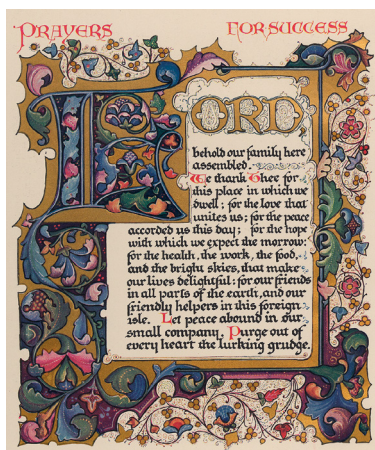 PRAYERS FOR SUCCESS
LORD
behold our family here
assembled.
We thank Thee for
this place in which we
dwell; for the love that
unites us; for the peace
accorded us this day; for the hope
with which we expect the morrow:
for the health, the work, the food,
and the bright skies, that make
our lives delightful: for our friends
in all parts of the earth, and our
friendly helpers in this foreign
isle. Let peace abound in our
small company, Purge out of
every heart the lurking grudge,